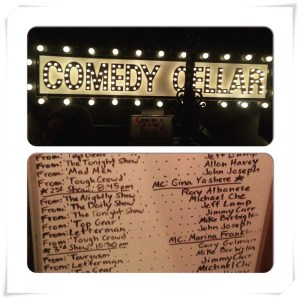 COMEDY CELLAR
From: The Tonight Show Allan Havey
From: 'Mad Men' John Joseph
From: 'Tough Crowd'
2nd Show: 8:45pm MC: Gina Yashere
From: The Nightly Show Rory Albanese
From: The Daily Show Michael Che
From: The Tonight Show Jeff Lamp
From: Top Gear Jimmy Carr
From: Letterman Mike Birbiglia
From: 'Tough Crowd' John Joseph
3rd Show: 10:30 MC: Marina Franklin
From: Gary Gulman
From: Letterman Mike Birbiglia
From: 'Top Gear' Jimmy Carr
Michael Che